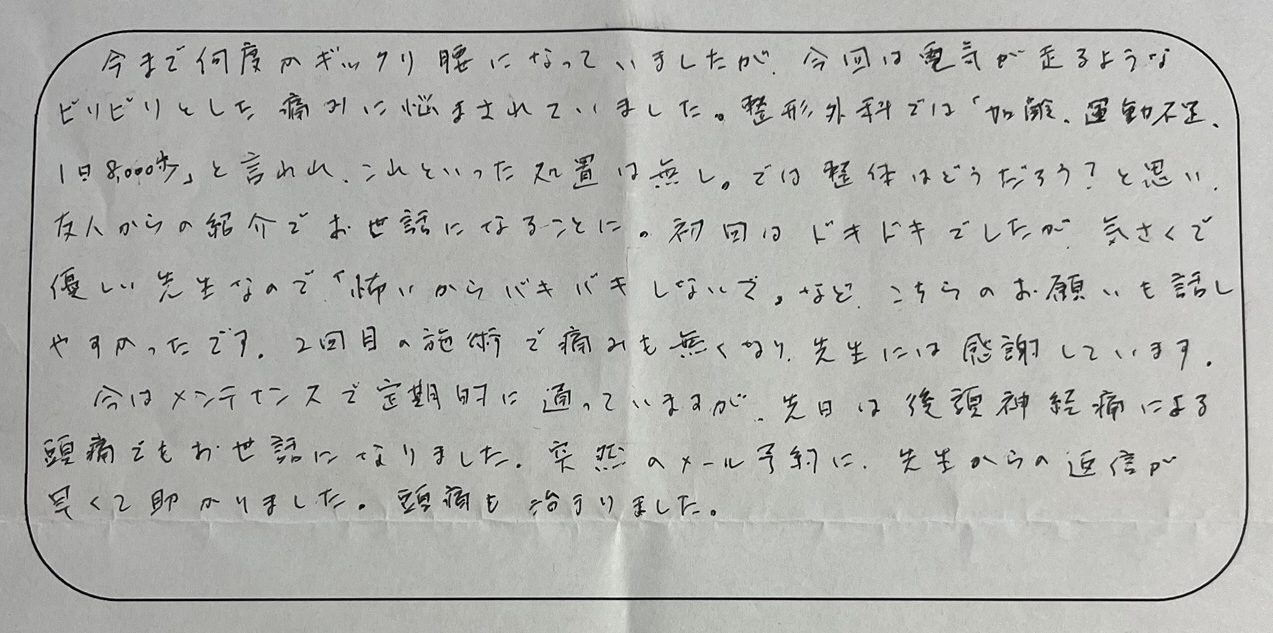 今まで何度かギックリ腰になっていましたが、今回は電気が走るような
ビリビリとした痛みに悩まされていました。整形外科では「加齢、運動不足、
1日8,000歩」と言われ、これといった処置は無し。では整体はどうだろう?と思い、
友人からの紹介でお世話になることに。初回はドキドキでしたが、気さくで
優しい先生なので、「怖いからバキバキしないで」など、こちらのお願いも話し
やすかったです。2回目の施術で痛みも無くなり、先生には感謝しています。
今はメンテナンスで定期的に通っていますが、先日は後頭神経痛による
頭痛でもお世話になりました。突然のメール予約に、先生からの返信が
早くて助かりました。頭痛も治まりました。